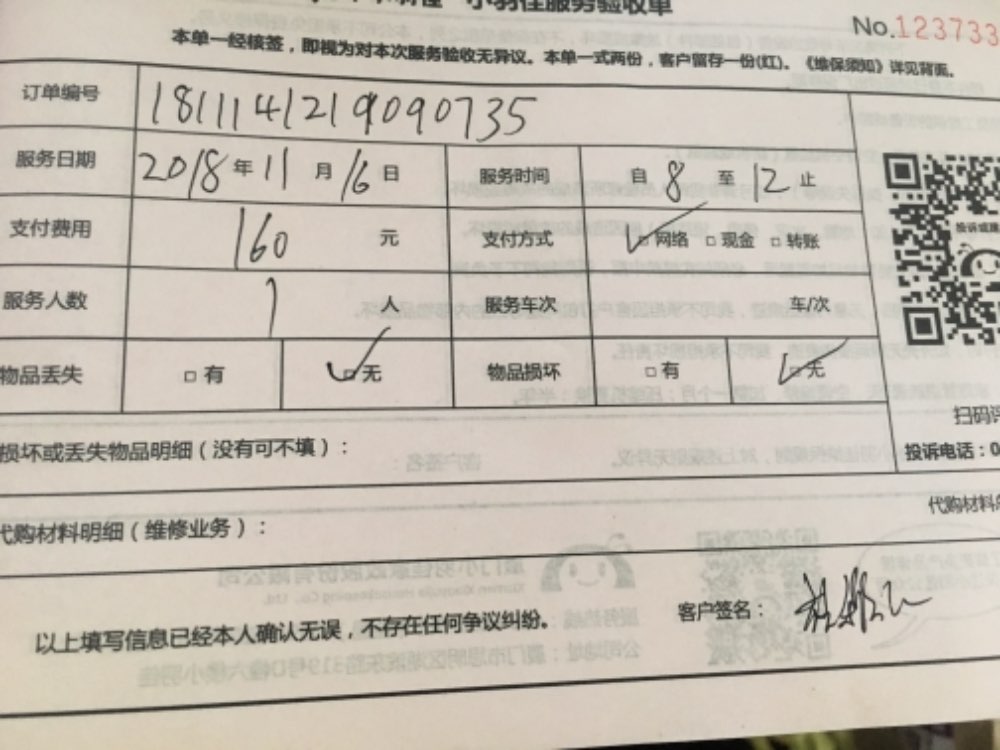 小羽佳服务验收单
No.123733
本单一经核签，即视为对本次服务验收无异议。本单一式两份，客户留存一份(红)。《维保须知》详见背面。
订单编号 1811141219090735
服务日期 2018年11月16日 服务时间 自8至12止
支付费用 160元 支付方式 ☑网络 □现金 □转账
服务人数 1人 服务车次 车/次
物品丢失 □有 ☑无 物品损坏 □有 ☑无
扫码评
损坏或丢失物品明细（没有可不填）：
投诉电话：0
代购材料
代购材料明细（维修业务）：
客户签名：
以上填写信息已经本人确认无误，不存在任何争议纠纷。